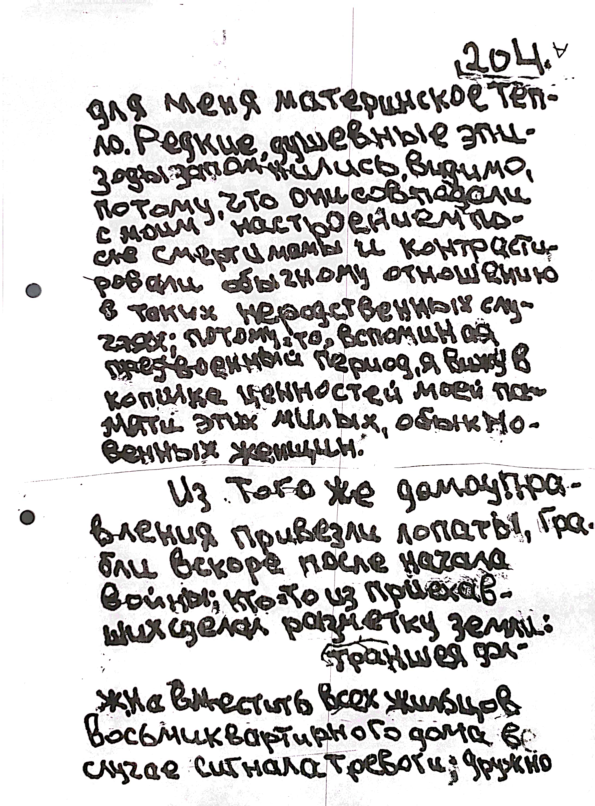 204.
для меня материнское теп-
ло. Редкие, душевные эпи-
зоды запомнились, видимо,
потому, что они совпадали
с моим настроением по-
сле смерти мамы и контрасти-
ровали обычному отношению
в таких неродственных слу-
чаях; потому-то, вспоминая
предвоенный период, я вижу в
копилке ценностей моей па-
мяти этих милых, обыкно-
венных женщин.
Из того же домоупра-
вления привезли лопаты, гра-
бли вскоре после начала
войны; кто-то из приехав-
ших сделал разметку земли:
траншея дол-
жна вместить всех жильцов
восьмиквартирного дома в
случае сигнала тревоги; дружно